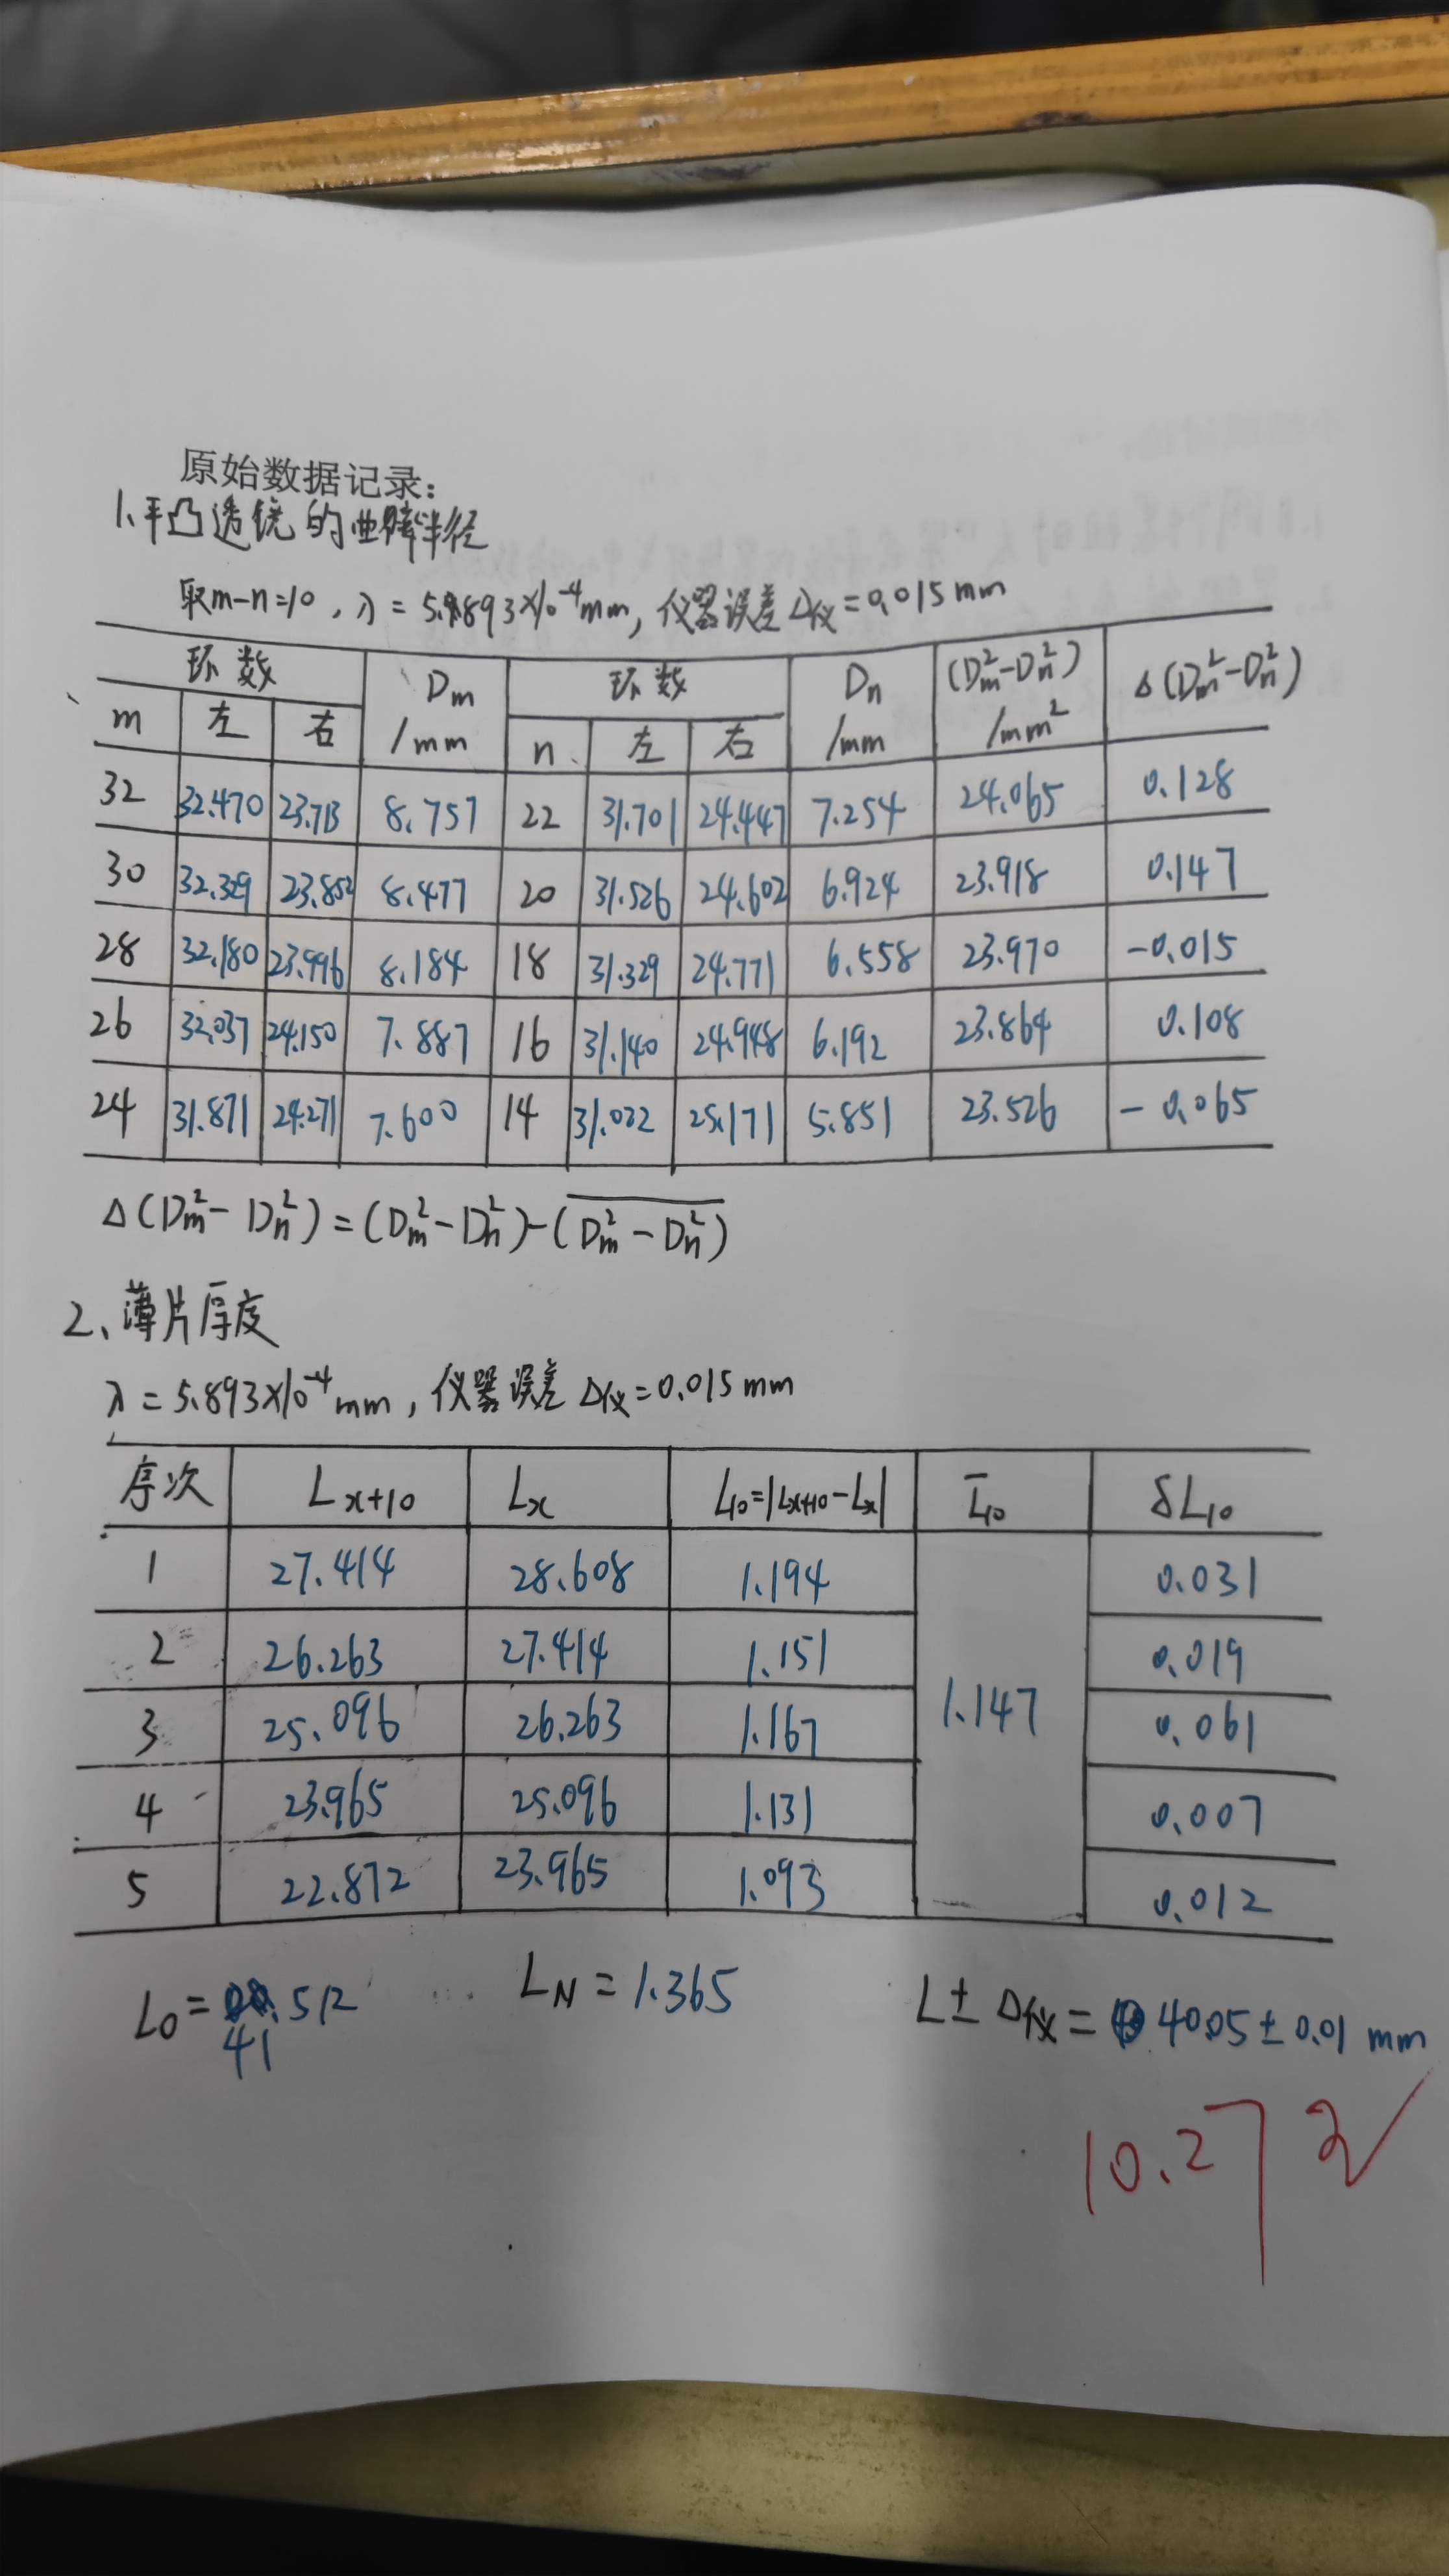 原始数据记录:
1、平凸透镜的曲率半径
取m-n=10, λ=5.893×10⁻⁴mm, 仪器误差Δ仪=0.015mm
环数 Dm/mm 环数 Dn/mm (Dm²-Dn²)/mm² Δ(Dm²-Dn²)
m 左 右 n 左 右
32 32.470 23.713 8.757 22 31.701 24.447 7.254 24.065 0.128
30 32.329 23.852 8.477 20 31.526 24.602 6.924 23.918 0.147
28 32.180 23.996 8.184 18 31.329 24.771 6.558 23.970 -0.015
26 32.037 24.150 7.887 16 31.140 24.948 6.192 23.864 0.108
24 31.871 24.271 7.600 14 31.022 25.171 5.851 23.526 -0.065
Δ(Dm²-Dn²)=(Dm²-Dn²)-(\overline{Dm²-Dn²})
2、薄片厚度
λ=5.893×10⁻⁴mm, 仪器误差Δ仪=0.015mm
序次 Lx+10 Lx L10=|Lx+10-Lx| L̄10 δL10
1 27.414 28.608 1.194 0.031
2 26.263 27.414 1.151 0.019
3 25.096 26.263 1.167 1.147 0.061
4 23.965 25.096 1.131 0.007
5 22.872 23.965 1.093 0.012
L0=41.512 LN=1.365 L±Δ仪=40.05±0.01 mm
10.27